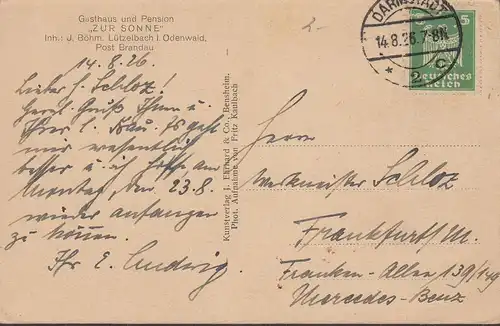 Gasthaus und Pension
„ZUR SONNE"
Inh.: J. Böhm, Lützelbach i. Odenwald,
Post Brandau
14.8.26.
Lieber H. Schloz!
Herzl. Gruß Ihnen u
Ihrer l. Frau. Es geht
mir wesentlich
besser u ich hoffe, am
Montag, den 23.8.
wieder anfangen
zu können.
Ihr E. Ludwig.
Kunstverlag J. Ehrhard & Co., Bensheim.
Phot. Aufnahme von Fritz Kaulbach
2.-
DARMSTADT
14.8.26.7-8N.
* 2 c
5
5
Deutsches
Reich
Herrn
Werkmeister Schloz
Frankfurt M.
Franken-Allee 139/149
Mercedes-Benz